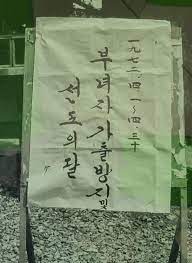 一九七二.四.一~四.三十
부녀자가출방지및
선도의달